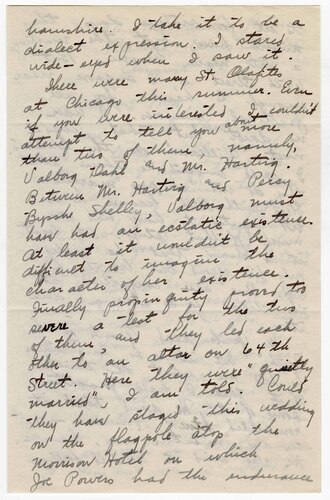 hamshire. I take it to be a
dialect expression. I stared
wide-eyed when I saw it.
There were many St. Olafites
at Chicago this summer. Even
if you were interested I couldn't
attempt to tell you about more
than two of them, namely,
Valborg Dahl and Mr. Hartwig.
Between Mr. Hartwig and Percy
Bysshe Shelly, Valborg must
have had an ecstatic existence.
At least it wouldn't be
difficult to imagine the
character of her existence.
Finally propinquity proved too
severe a test for the two
of them, and they led each
other to an altar on 64th
Street. Here they were "quietly
married", I am told. Could
they have staged this wedding
on the flagpole atop the
Morrison Hotel on which
Joe Powers had the endurance